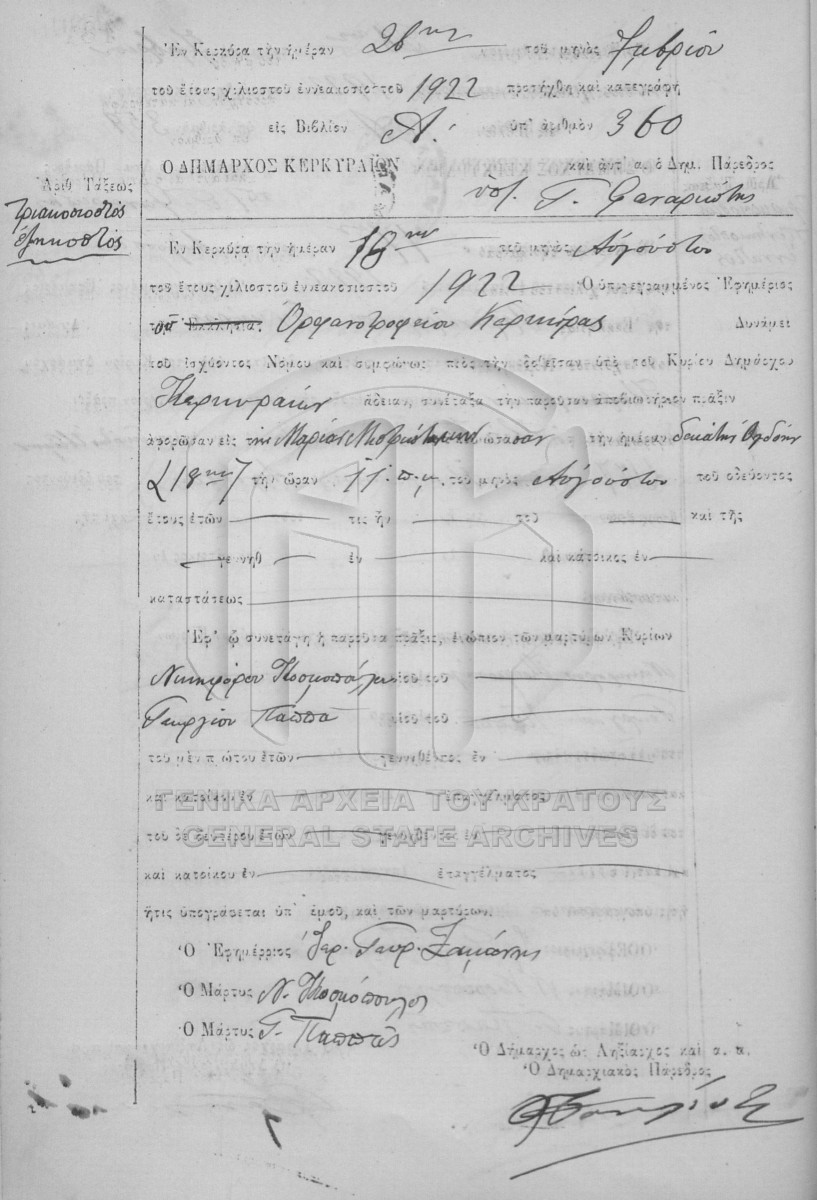 Ἐν Κερκύρᾳ τὴν ἡμέραν 28ην τοῦ μηνὸς 7μβρίου
τοῦ ἔτους χιλιοστοῦ ἐννεακοσιοστοῦ 1922 προσήχθη καὶ κατεγράφη
εἰς Βιβλίον Α. ὑπ' ἀριθμὸν 360
Ο ΔΗΜΑΡΧΟΣ ΚΕΡΚΥΡΑΙΩΝ
καὶ ἀντ' α. ὁ Δημ. Πάρεδρος
Ἀριθ Τάξεως
τριακοσιοστὸς
ἑξηκοστὸς
Ἐν Κερκύρᾳ τὴν ἡμέραν 18ην τοῦ μηνὸς Αὐγούστου
τοῦ ἔτους χιλιοστοῦ ἐννεακοσιοστοῦ 1922 Ὁ ὑπογεγραμμένος Ἐφημέριος
τοῦ Ἐκκλησίας Ὀρφανοτροφείου Κερκύρας Δυνάμει
τοῦ ἰσχύοντος Νόμου καὶ συμφώνως πρὸς τὴν δοθεῖσαν ὑπὸ τοῦ Κυρίου Δημάρχου
Κερκυραίων ἄδειαν, συνέταξα τὴν παροῦσαν ἀποβιωτήριον πρᾶξιν
ἀφορῶσαν εἰς τὴν Μαρίαν τὴν ἡμέραν δεκάτην ὀγδόην
(18ην) τὴν ὥραν 11 π.μ. τοῦ μηνὸς Αὐγούστου τοῦ ὁδεύοντος
ἔτους ἐτῶν τις ἦν τοῦ καὶ τῆς
γεννηθ ἐν καὶ κάτοικος ἐν
καταστάσεως
Ἐφ' ᾧ συνετάγη ἡ παροῦσα πρᾶξις, ἐνώπιον τῶν μαρτύρων Κυρίων
Νικηφόρου υἱοῦ τοῦ
Γεωργίου Παππᾶ υἱοῦ τοῦ
τοῦ μὲν πρώτου ἐτῶν γεννηθέντος ἐν
καὶ κατοίκου ἐν ἐπαγγέλματος
ΓΕΝΙΚΑ ΑΡΧΕΙΑ ΤΟΥ ΚΡΑΤΟΥΣ
τοῦ δὲ δευτέρου ἐτῶν γεννηθέντος ἐν
GENERAL STATE ARCHIVES
καὶ κατοίκου ἐν ἐπαγγέλματος
ἥτις ὑπογράφεται ὑπ' ἐμοῦ, καὶ τῶν μαρτύρων.
Ὁ Ἐφημέριος Ἱερ. Γεωρ.
Ὁ Μάρτυς Ν.
Ὁ Μάρτυς Γ. Παππᾶς
Ὁ Δήμαρχος ὡς Ληξίαρχος καὶ α. α.
Ὁ Δημαρχιακὸς Πάρεδρος